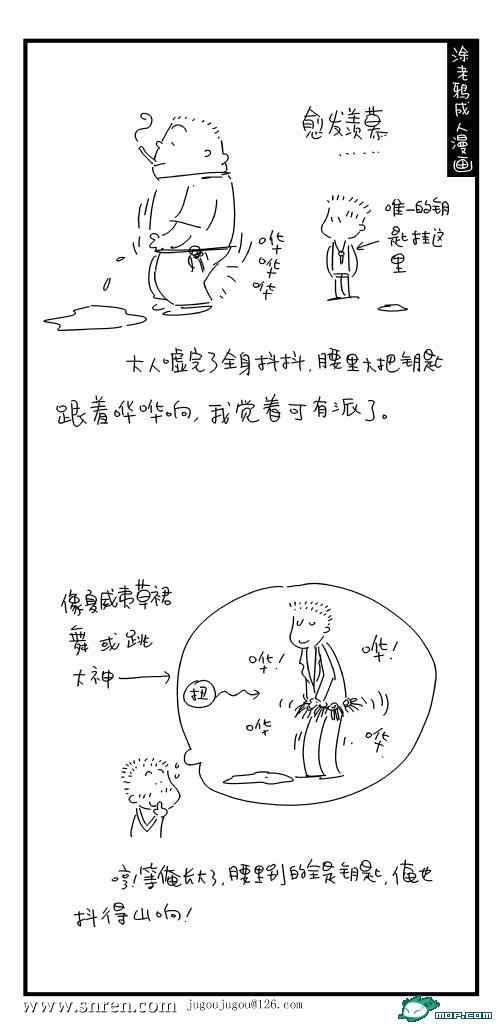 涂老鸦成人漫画
愈发羡慕
......
唯一的钥
匙挂这
里
哗
哗
哗
大人嘘完了全身抖抖,腰里大把钥匙
跟着哗哗响,我觉着可有派了。
像夏威夷草裙
舞或跳
大神
扭
哗!
哗!
哗
哗!
哼!等俺长大了,腰里别的全是钥匙,俺也
抖得山响!
www.snren.com jugoujugou@126.com
mop.com